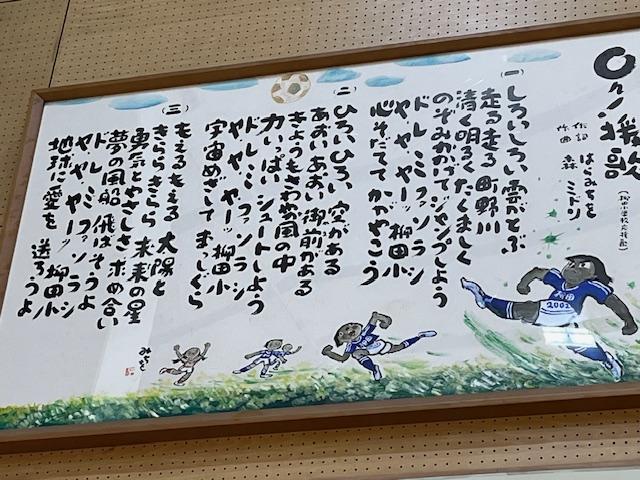 応援歌
(柳田小学校応援歌)
作詞 はらみちを
作曲 森 ミドリ
一
しろいしろい 雲がとぶ
走る走る 町野川
清く明るく たくましく
のぞみかかげて ジャンプしよう
ドレミファソラシ
ヤ、ヤ、ヤーッ 柳田小
心そだてて かがやこう
二
ひろいひろい 空がある
あおいあおい 御前がある
きょうもさわやか 風の中
力いっぱい シュートしよう
ドレミファソラシ
ヤ、ヤ、ヤーッ 柳田小
宇宙めざして まっしぐら
三
もえるもえる 太陽と
きららきらら 未来の星
勇気とやさしさ 求め合い
夢の風船 飛ばそうよ
ドレミファソラシ
ヤ、ヤ、ヤーッ 柳田小
地球に愛を 送ろうよ
みちを
柳田
2002